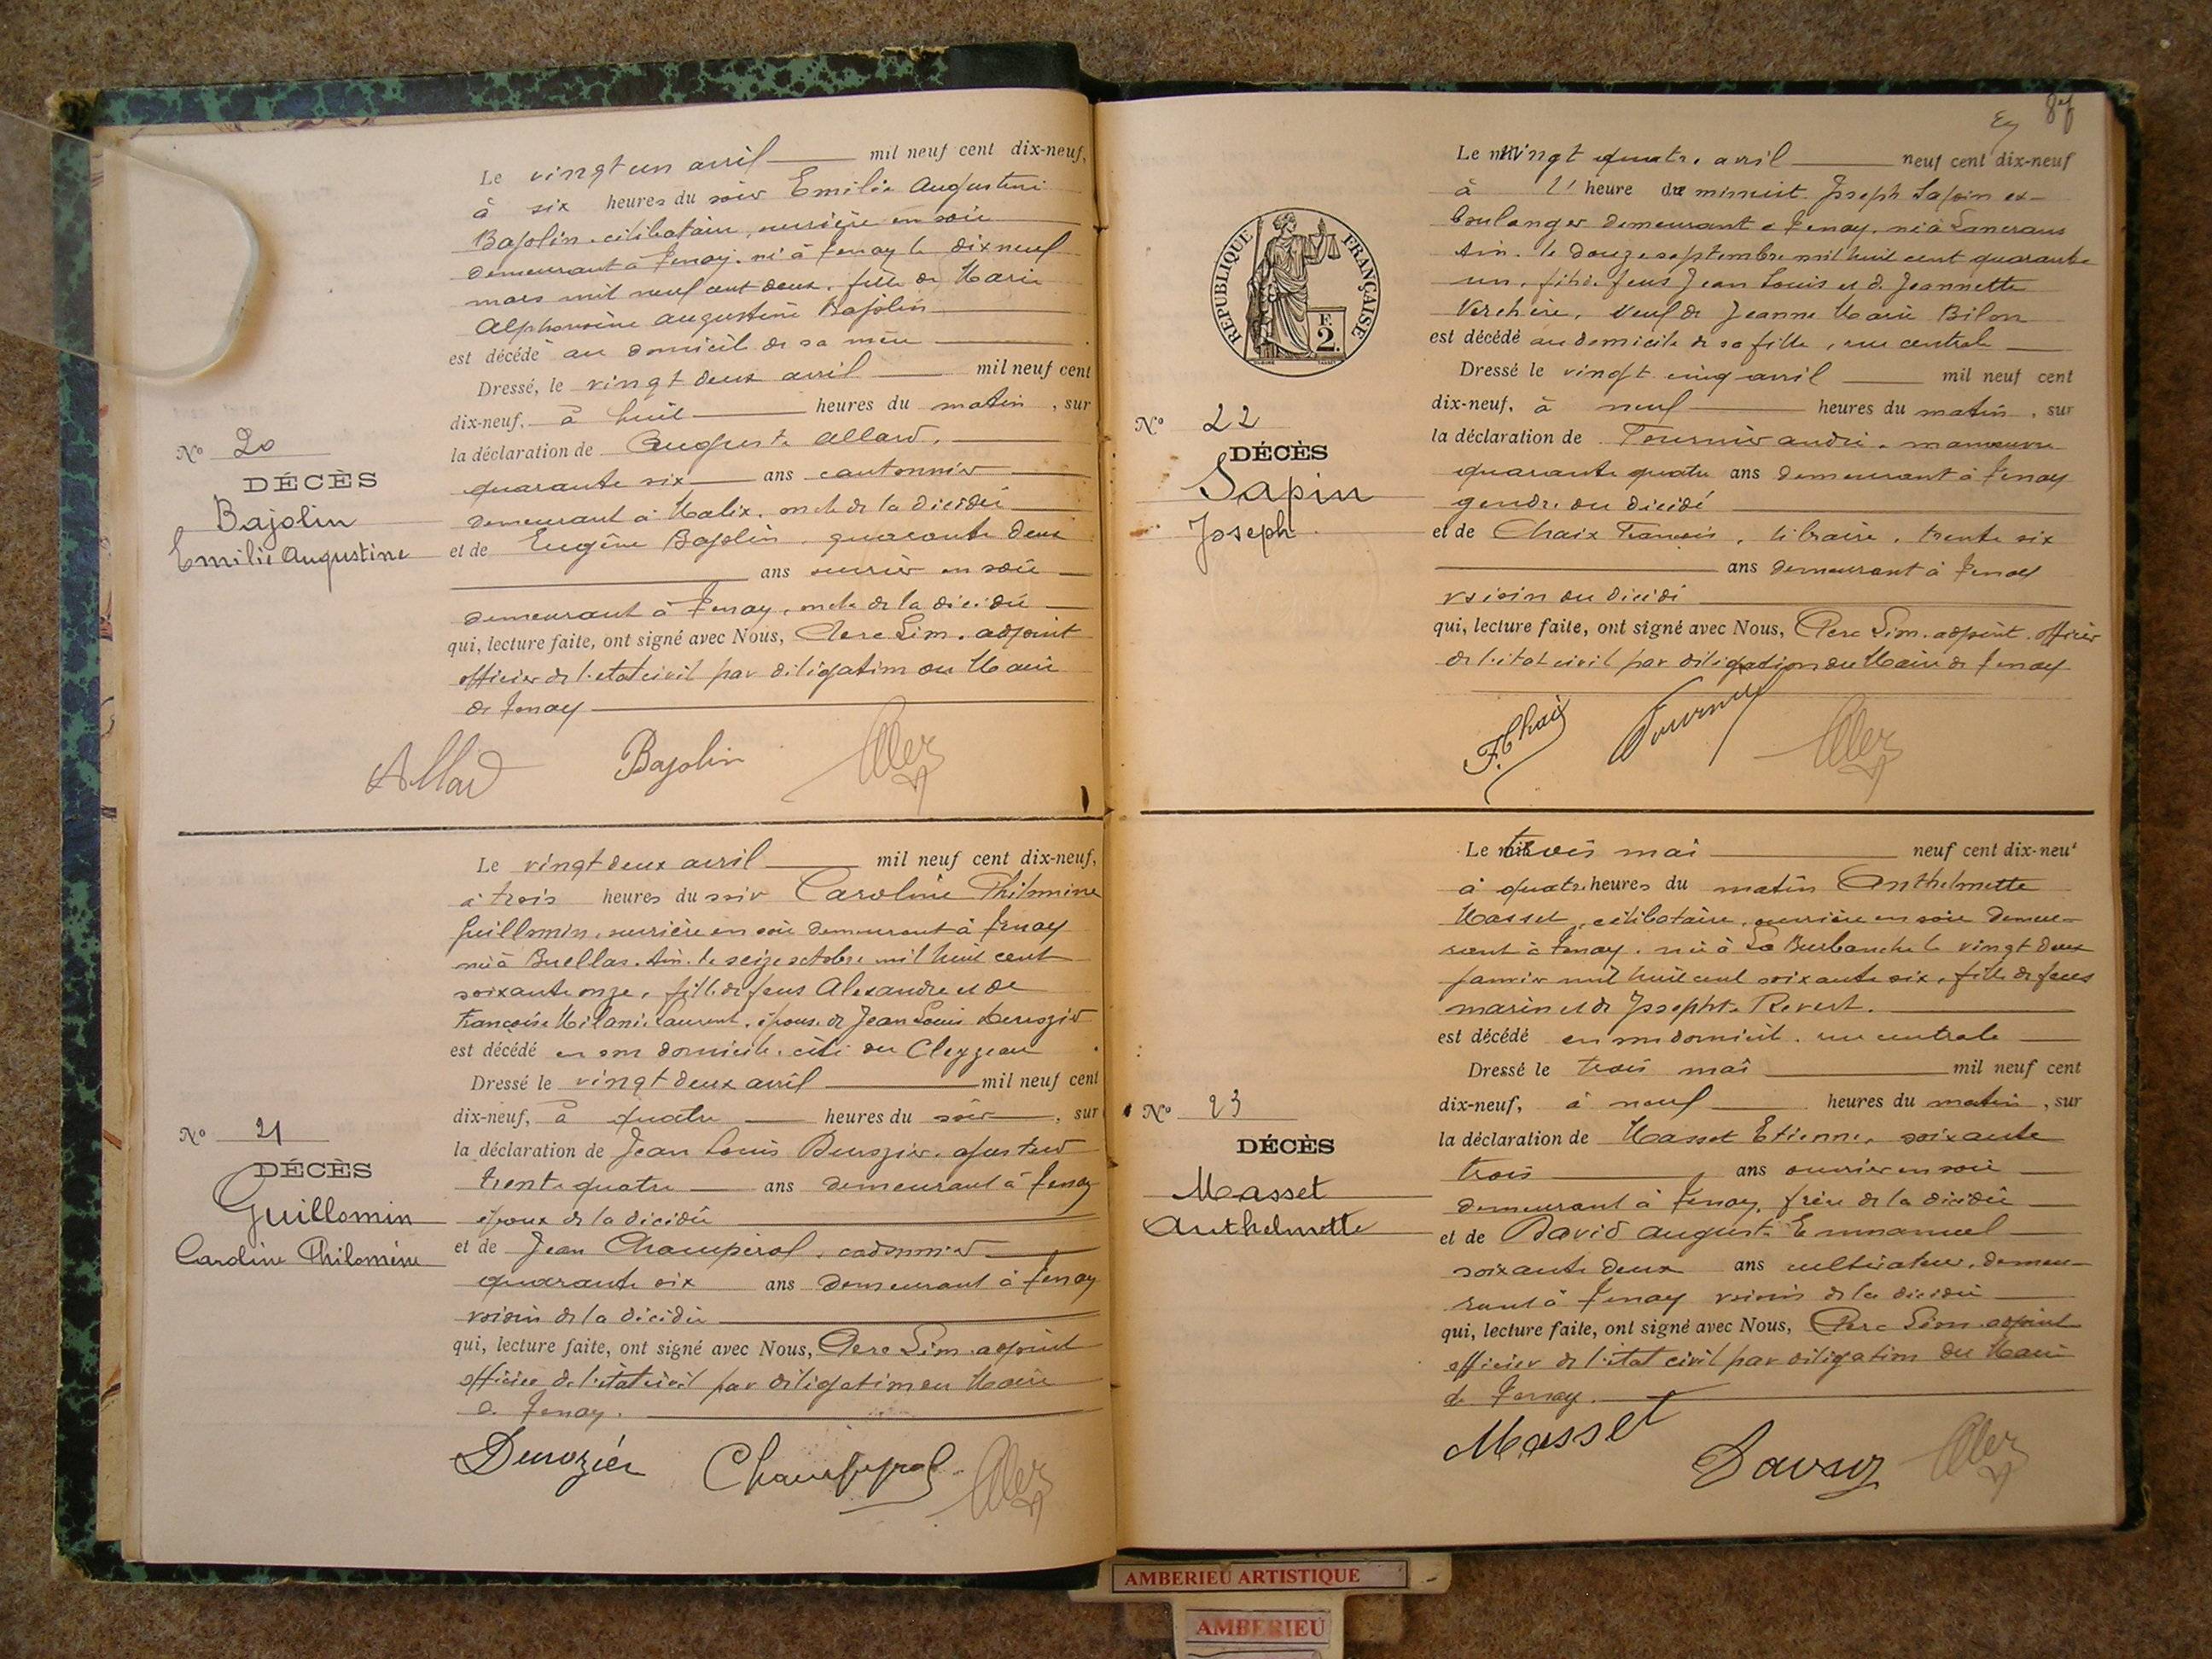 Le vingt un avril mil neuf cent dix-neuf,
à six heures du soir Emilie Augustine
Bajolin, célibataire, ouvrière en soie
demeurant à Tenay, né à Tenay le dix neuf
mars mil neuf cent deux, fille de Marie
Alphonsine Augustine Bajolin
est décédé au domicile de sa mère
Dressé, le vingt deux avril mil neuf cent
dix-neuf, à huit heures du matin, sur
la déclaration de Auguste Allard,
quarante six ans cantonnier
demeurant à Malix, oncle de la décédée
et de Eugène Bajolin, quarante deux
ans ouvrier en soie
demeurant à Tenay, oncle de la décédée
qui, lecture faite, ont signé avec Nous, adjoint
officier de l'état civil par délégation du Maire
de Tenay
Nº 20
DÉCÈS
Bajolin
Emilie Augustine
Allard Bajolin
Le vingt deux avril mil neuf cent dix-neuf,
à trois heures du soir Caroline Philomine
Guillomin, ouvrière en soie demeurant à Tenay
née à Buellas. Ain. le seize octobre mil huit cent
soixante onze, fille de feus Alexandre et de
Françoise Mélanie Laurent, épouse de Jean Louis Derozier
est décédé en son domicile, cité du Cleyzeau
Dressé le vingt deux avril mil neuf cent
dix-neuf, à quatre heures du soir, sur
la déclaration de Jean Louis Derozier, ajusteur
trente quatre ans demeurant à Tenay
époux de la décédée
et de Jean Champérol, cordonnier
quarante six ans demeurant à Tenay
voisin de la décédée
qui, lecture faite, ont signé avec Nous, adjoint
officier de l'état civil par délégation du Maire
de Tenay.
Nº 21
DÉCÈS
Guillomin
Caroline Philomène
Derozier Champérol
87
Le vingt quatre avril neuf cent dix-neuf
à heure de minuit Joseph Sapin ex-
boulanger demeurant à Tenay, né à Lancrans
Ain. le douze septembre mil huit cent quarante
un, fils de feus Jean Louis et de Jeannette
Verchère, veuf de Jeanne Marie Bilon
est décédé au domicile de sa fille, rue centrale
Dressé le vingt cinq avril mil neuf cent
dix-neuf, à neuf heures du matin, sur
la déclaration de Tournier André, manoeuvre
quarante quatre ans demeurant à Tenay
gendre du décédé
et de Chaix François, libraire, trente six
ans demeurant à Tenay
voisin du décédé
qui, lecture faite, ont signé avec Nous, adjoint officier
de l'état civil par délégation du Maire de Tenay
REPUBLIQUE FRANÇAISE
F.
2.
Nº 22
DÉCÈS
Sapin
Joseph
F. Chaix Tournier
Le trois mai neuf cent dix-neuf
à quatre heures du matin Anthelmette
Masset, célibataire, ouvrière en soie demeu-
rant à Tenay, née à La Burbanche le vingt deux
janvier mil huit cent soixante six, fille de feus
marin et de Josephte Revert.
est décédé en son domicile, rue centrale
Dressé le trois mai mil neuf cent
dix-neuf, à neuf heures du matin, sur
la déclaration de Masset Etienne, soixante
trois ans ouvrier en soie
demeurant à Tenay, frère de la décédée
et de David Auguste Emmanuel
soixante deux ans cultivateur, demeu-
rant à Tenay voisin de la décédée
qui, lecture faite, ont signé avec Nous, adjoint
officier de l'état civil par délégation du Maire
de Tenay.
Nº 23
DÉCÈS
Masset
Anthelmette
Masset David
AMBERIEU ARTISTIQUE
AMBERIEU